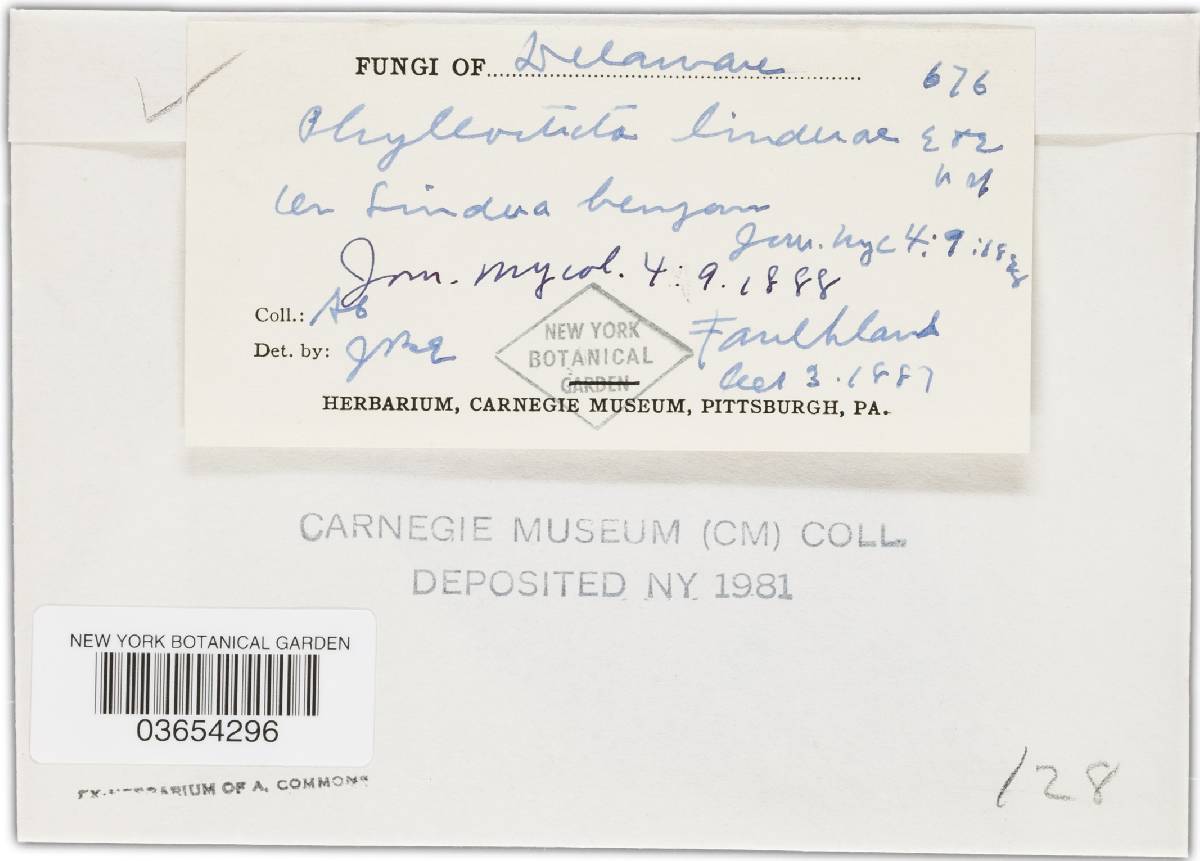 FUNGI OF Delaware
676
Phyllosticta linderae E & E
n sp
on Lindera benzoin
Jour. Myc 4:9:1888
Jour. mycol. 4:9. 1888
Coll.: AC
Faulkland
Det. by: JBE
Oct 3. 1887
NEW YORK
BOTANICAL
GARDEN
HERBARIUM, CARNEGIE MUSEUM, PITTSBURGH, PA.
CARNEGIE MUSEUM (CM) COLL.
DEPOSITED NY 1981
NEW YORK BOTANICAL GARDEN
03654296
EX-HERBARIUM OF A. COMMONS
128